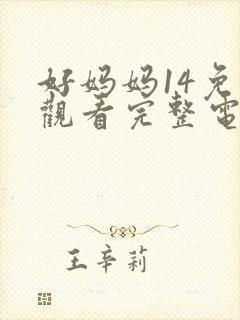 好妈妈14免
觀看完整電
王辛莉